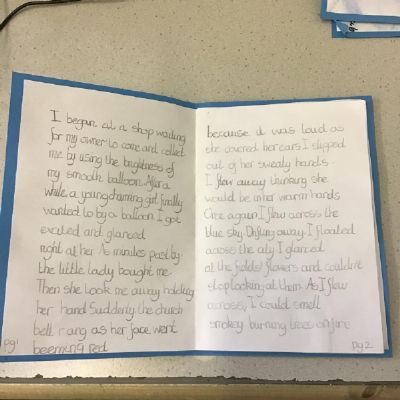 I began at a shop waiting
for my owner to come and collect
me by using the brightness of
my smooth balloon. After a
while a young charming girl finally
wanted to by a balloon. I got
excited and glanced
right at her. As minutes past by
the little lady bought me.
Then she took me away holding
her hand. Suddenly the church
bell rang as her face went
beeming red
pg1
because it was loud as
she covered her ears I slipped
out of her sweaty hands.
I flew away thinking she
would be in her warm hands
Once again. I flew across the
blue sky. Drifting away I floated
across the city I glanced
at the fields flowers and couldn't
stop looking at them. As I flew
across, I could smell
smokey burning trees on fire
pg2